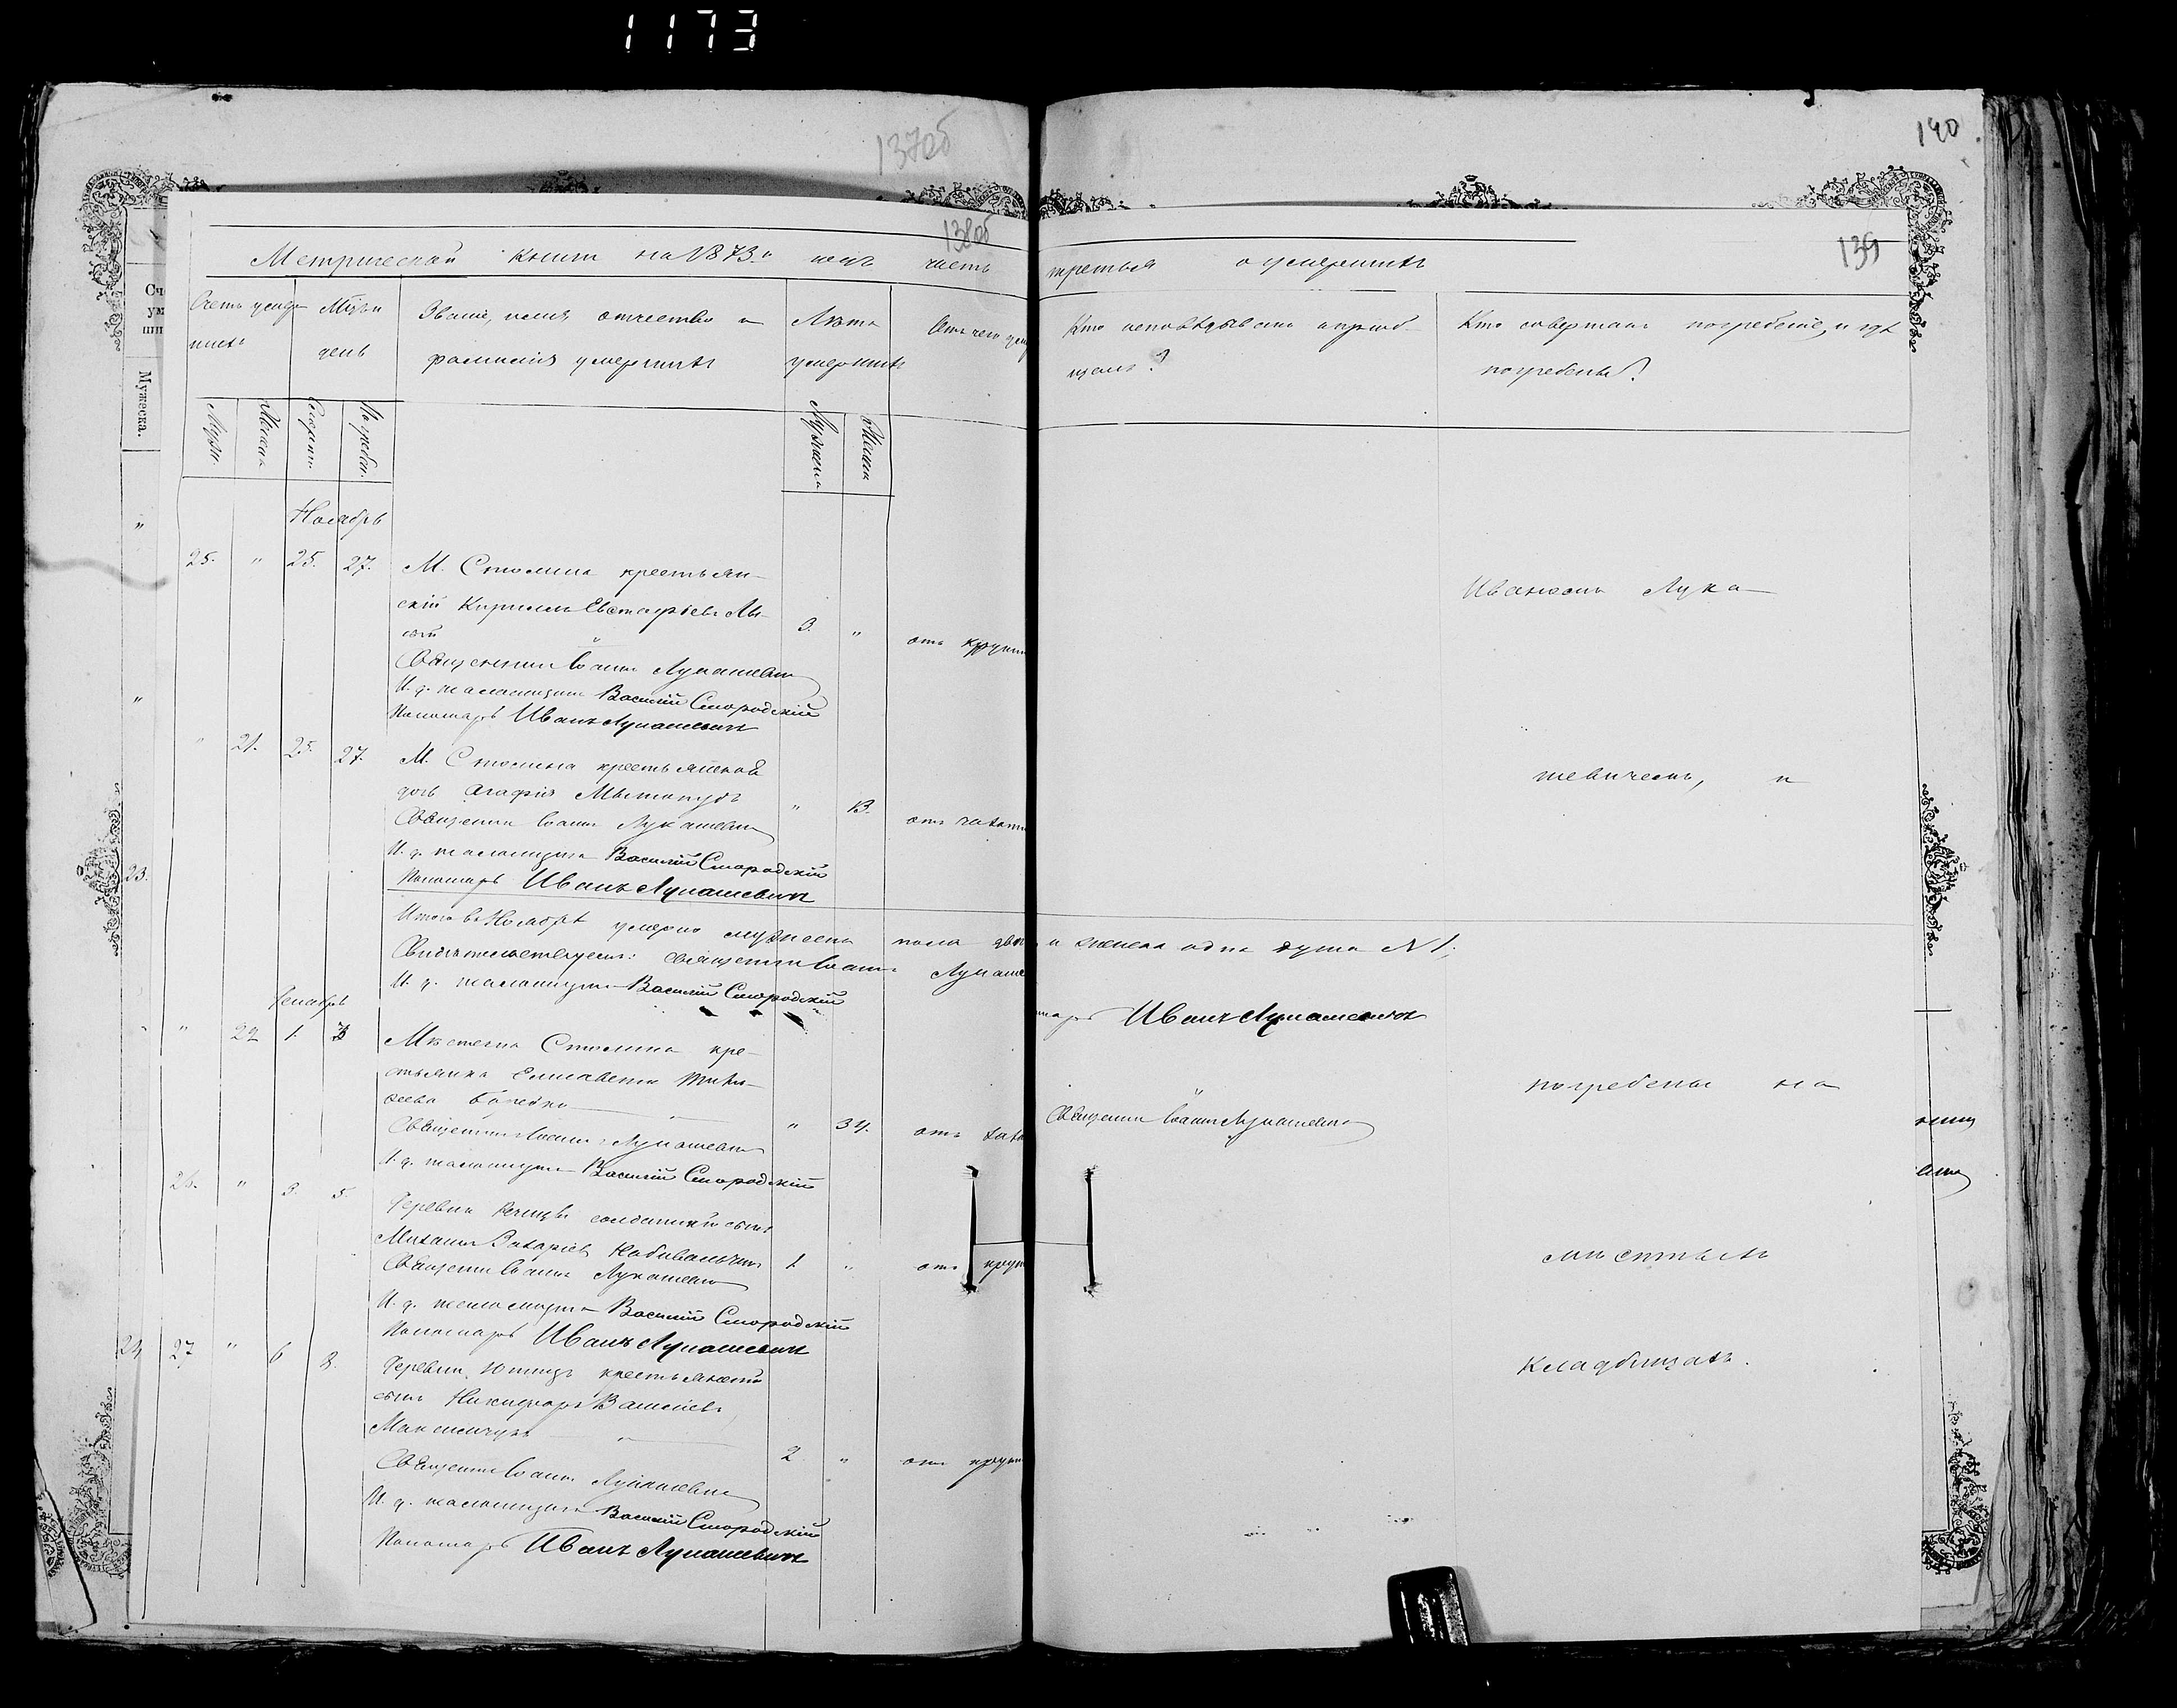 1173
140
137об
138об
139
Метрической книги на 1873й годъ часть третья о умершихъ
Счетъ умер-
шихъ
Мѣсяцъ и
день
Званіе, имя, отчество и
фамилія умершихъ
Лѣта
умершихъ
Отъ чего умер
Кто исповѣдывалъ и пріоб-
щалъ?
Кто совершалъ погребеніе, и гдѣ
погребены?
Мужеска.
Ноябрь
25. " 25. 27.
М. Столина крестьян-
скій Кириллъ Евстафіевъ Лы-
сый
3. "
отъ крупа
Священникъ Іоаннъ Лукашевичъ
И. д. псаломщика Василій Смородскій
Пономарь Иванъ Лукашевичъ
Иваномъ Лука-
" 21. 25. 27.
М. Столина крестьянская
дочь Агафія
" 13.
отъ чахотки
Священникъ Іоаннъ Лукашевичъ
И. д. псаломщика Василій Смородскій
Пономарь Иванъ Лукашевичъ
шевичемъ, и
23.
Итого въ Ноябрѣ умерло мужеска пола двое и женска одна душа №1.
Свидѣтельствуемъ: Священникъ Іоаннъ Лукаше
И. д. псаломщика Василій Смородскій
марь Иванъ Лукашевичъ
Декабрь
" 22 1. 3
Мѣстечка Столина кре-
стьянка Елисавета
" 34.
отъ
Священникъ Іоаннъ Лукашевичъ
И. д. псаломщика Василій Смородскій
Священникъ Іоаннъ Лукашевичъ
погребены на
26. " 3. 5.
Деревни Речицы солдатскій сынъ
Михаилъ Захаріевъ
1 "
отъ круп
Священникъ Іоаннъ Лукашевичъ
И. д. псаломщика Василій Смородскій
Пономарь Иванъ Лукашевичъ
мѣстныхъ
24
27 " 6 8.
Деревни крестьянскій
сынъ Никифоръ Василіевъ
Максимчукъ
2 "
отъ крупа
Священникъ Іоаннъ Лукашевичъ
И. д. псаломщика Василій Смородскій
Пономарь Иванъ Лукашевичъ
кладбищахъ.